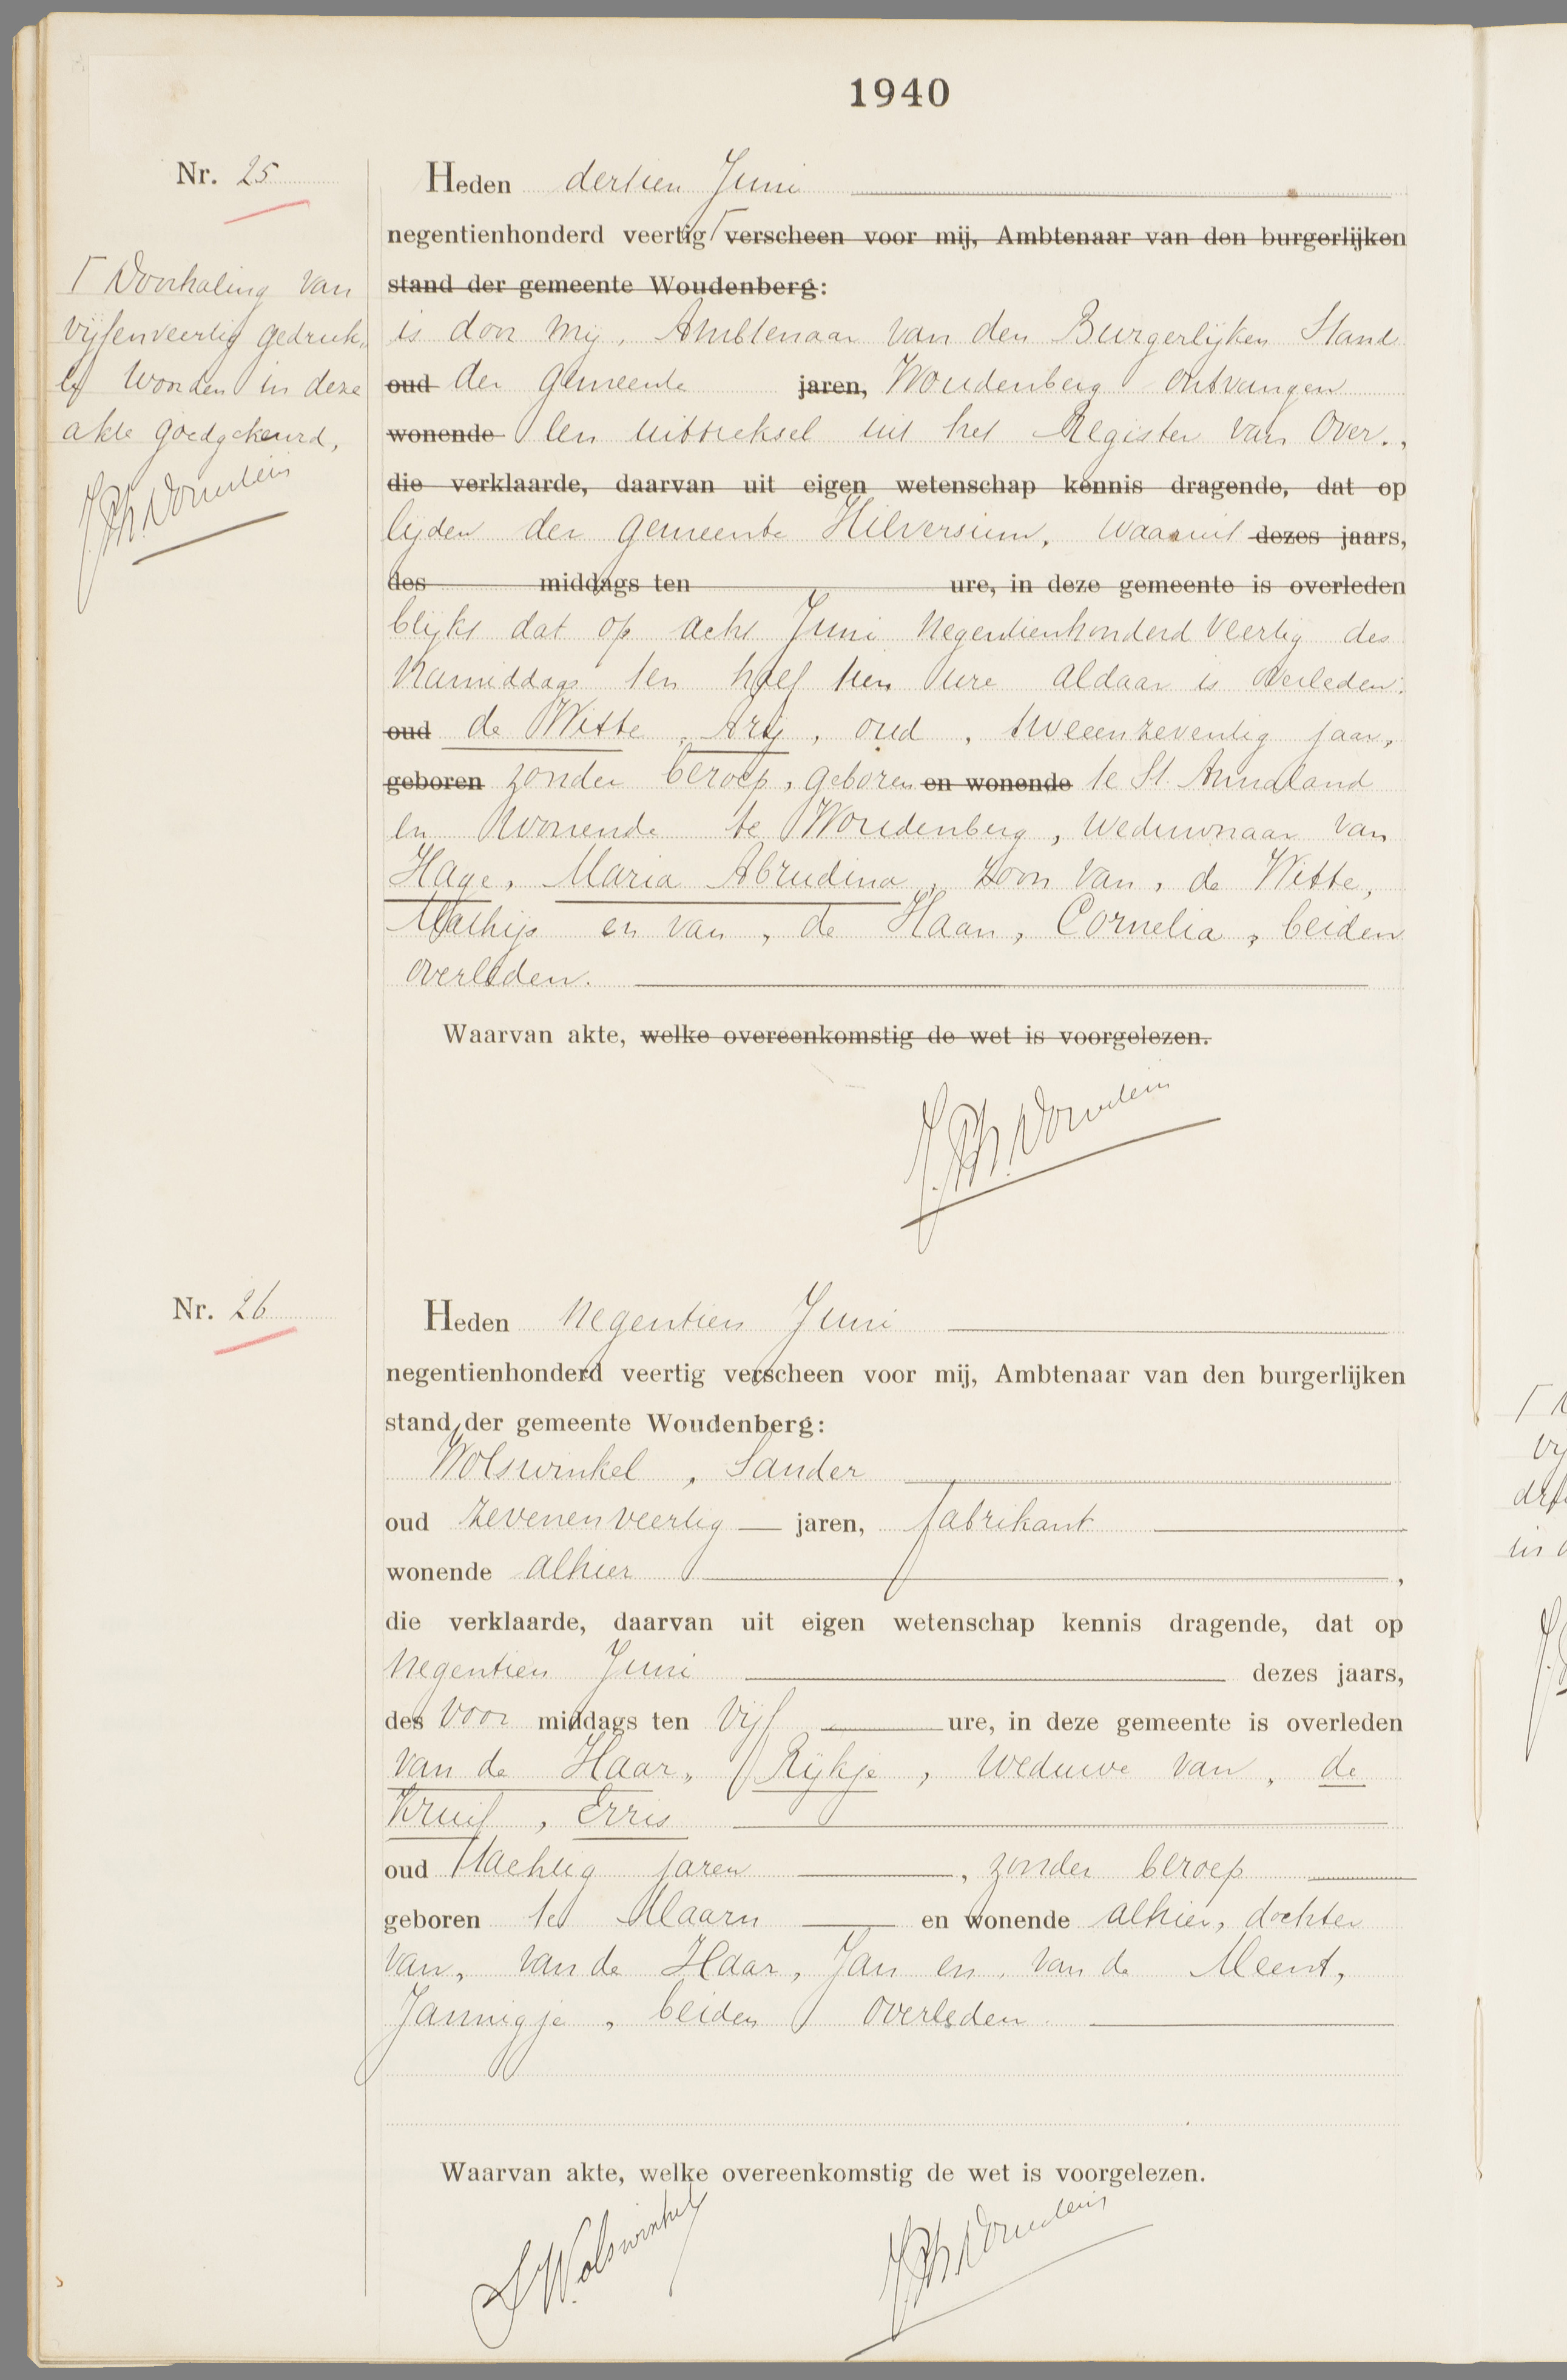 1940
Nr. 25
Heden dertien Juni
negentienhonderd veertig ┌ verscheen voor mij, Ambtenaar van den burgerlijken
stand der gemeente Woudenberg:
┌ Doorhaling van
vijfenveertig gedruk-
te woorden in deze
akte goedgekeurd,
is door mij, Ambtenaar van den Burgerlijken Stand
oud der gemeente jaren, Woudenberg ontvangen
wonende een uittreksel uit het Register van Over-
die verklaarde, daarvan uit eigen wetenschap kennis dragende, dat op
lijden der gemeente Hilversum, waaruit dezes jaars,
des middags ten ure, in deze gemeente is overleden
blijkt dat op acht Juni negentienhonderd veertig des
namiddags ten half tien ure aldaar is overleden:
oud de Witte, Arij, oud, tweeenzeventig jaar,
geboren zonder beroep, geboren en wonende te St. Annaland
en wonende te Woudenberg, weduwnaar van
Hage, Maria Abrudina, zoon van, de Witte,
Mathijs en van, de Haan, Cornelia, beiden
overleden.
Waarvan akte, welke overeenkomstig de wet is voorgelezen.
Nr. 26
Heden negentien Juni
negentienhonderd veertig verscheen voor mij, Ambtenaar van den burgerlijken
stand der gemeente Woudenberg:
Wolswinkel, Sander
oud zevenenveertig jaren, fabrikant
wonende alhier,
die verklaarde, daarvan uit eigen wetenschap kennis dragende, dat op
negentien Juni dezes jaars,
des voor middags ten vijf ure, in deze gemeente is overleden
van de Haar, Rijkje, weduwe van, de
Kruif, Erris
oud tachtig jaren, zonder beroep
geboren te Maarn en wonende alhier, dochter
van, van de Haar, Jan en, van de Meent,
Jannigje, beiden overleden.
Waarvan akte, welke overeenkomstig de wet is voorgelezen.
S Wolswinkel